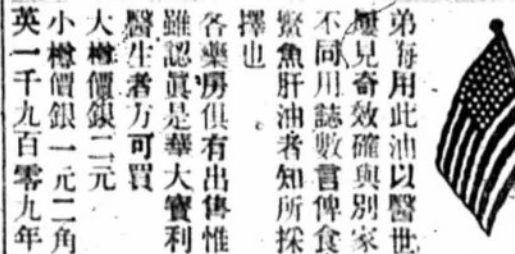 弟每用此油以醫世
屢見奇效確與別家
不同用誌數言俾食
鰵魚肝油者知所採
擇也
各藥房俱有出售惟
雖認眞是華大寶利
醫生者方可買
大樽價銀二元
小樽價銀一元二角
英一千九百零九年